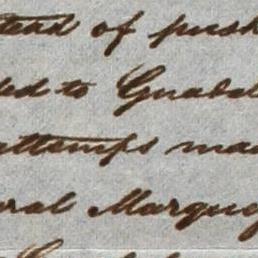 stead of push
ded to Guadal
attemps mad
ral Marque